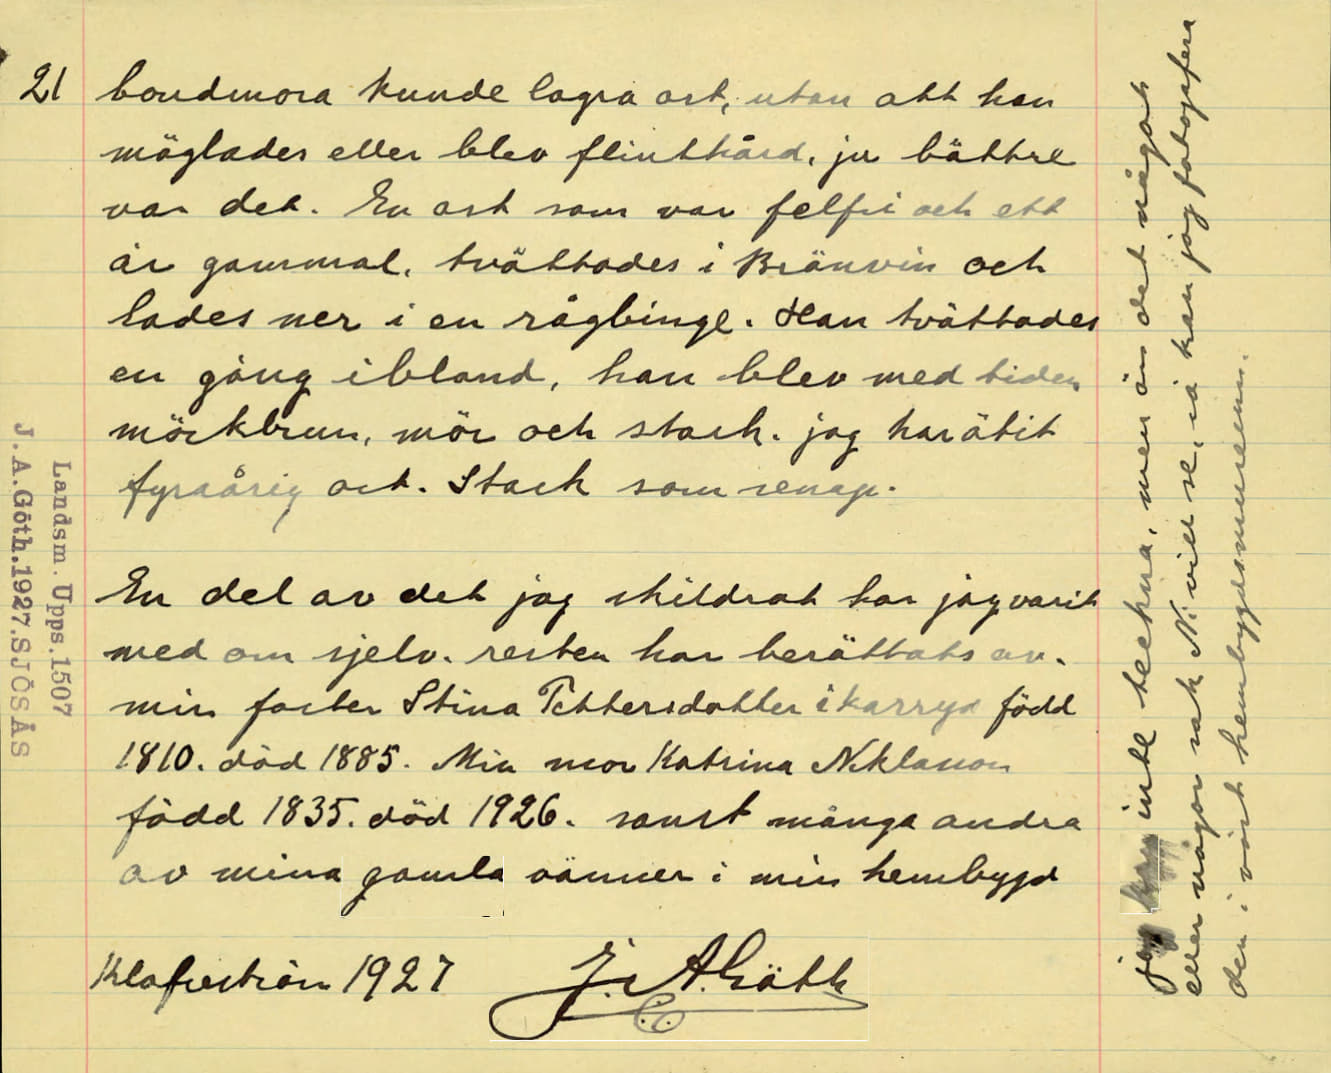 21
bondmora kunde lagra ost, utan att han
möglades eller blev flinthård, ju bättre
var det. En ost som var felfri och ett
år gammal, tvättades i Bränvin och
lades ner i en rågbinge. Han tvättades
en gång ibland, han blev med tiden
mörkbrun, mör och stark. jag har ätit
fyraårig ost. Stark som senap.
En del av det jag skildrat har jag varit
med om sjelv. resten har berättats av.
min faster Stina Pettersdotter i karryd född
1810. död 1885. Min mor Katrina Niklasson
född 1835. död 1926. samt många andra
av mina gamla vänner i min hembygd
Klafreström 1927 J. A. Göth
jag kan inte teckna, men är det något
eller några sak Ni vill se, så kan jag fotografera
den i vårt hembygdsmuseum.
Landsm. Upps. 1507
J.A.Göth.1927.SJÖSÅS